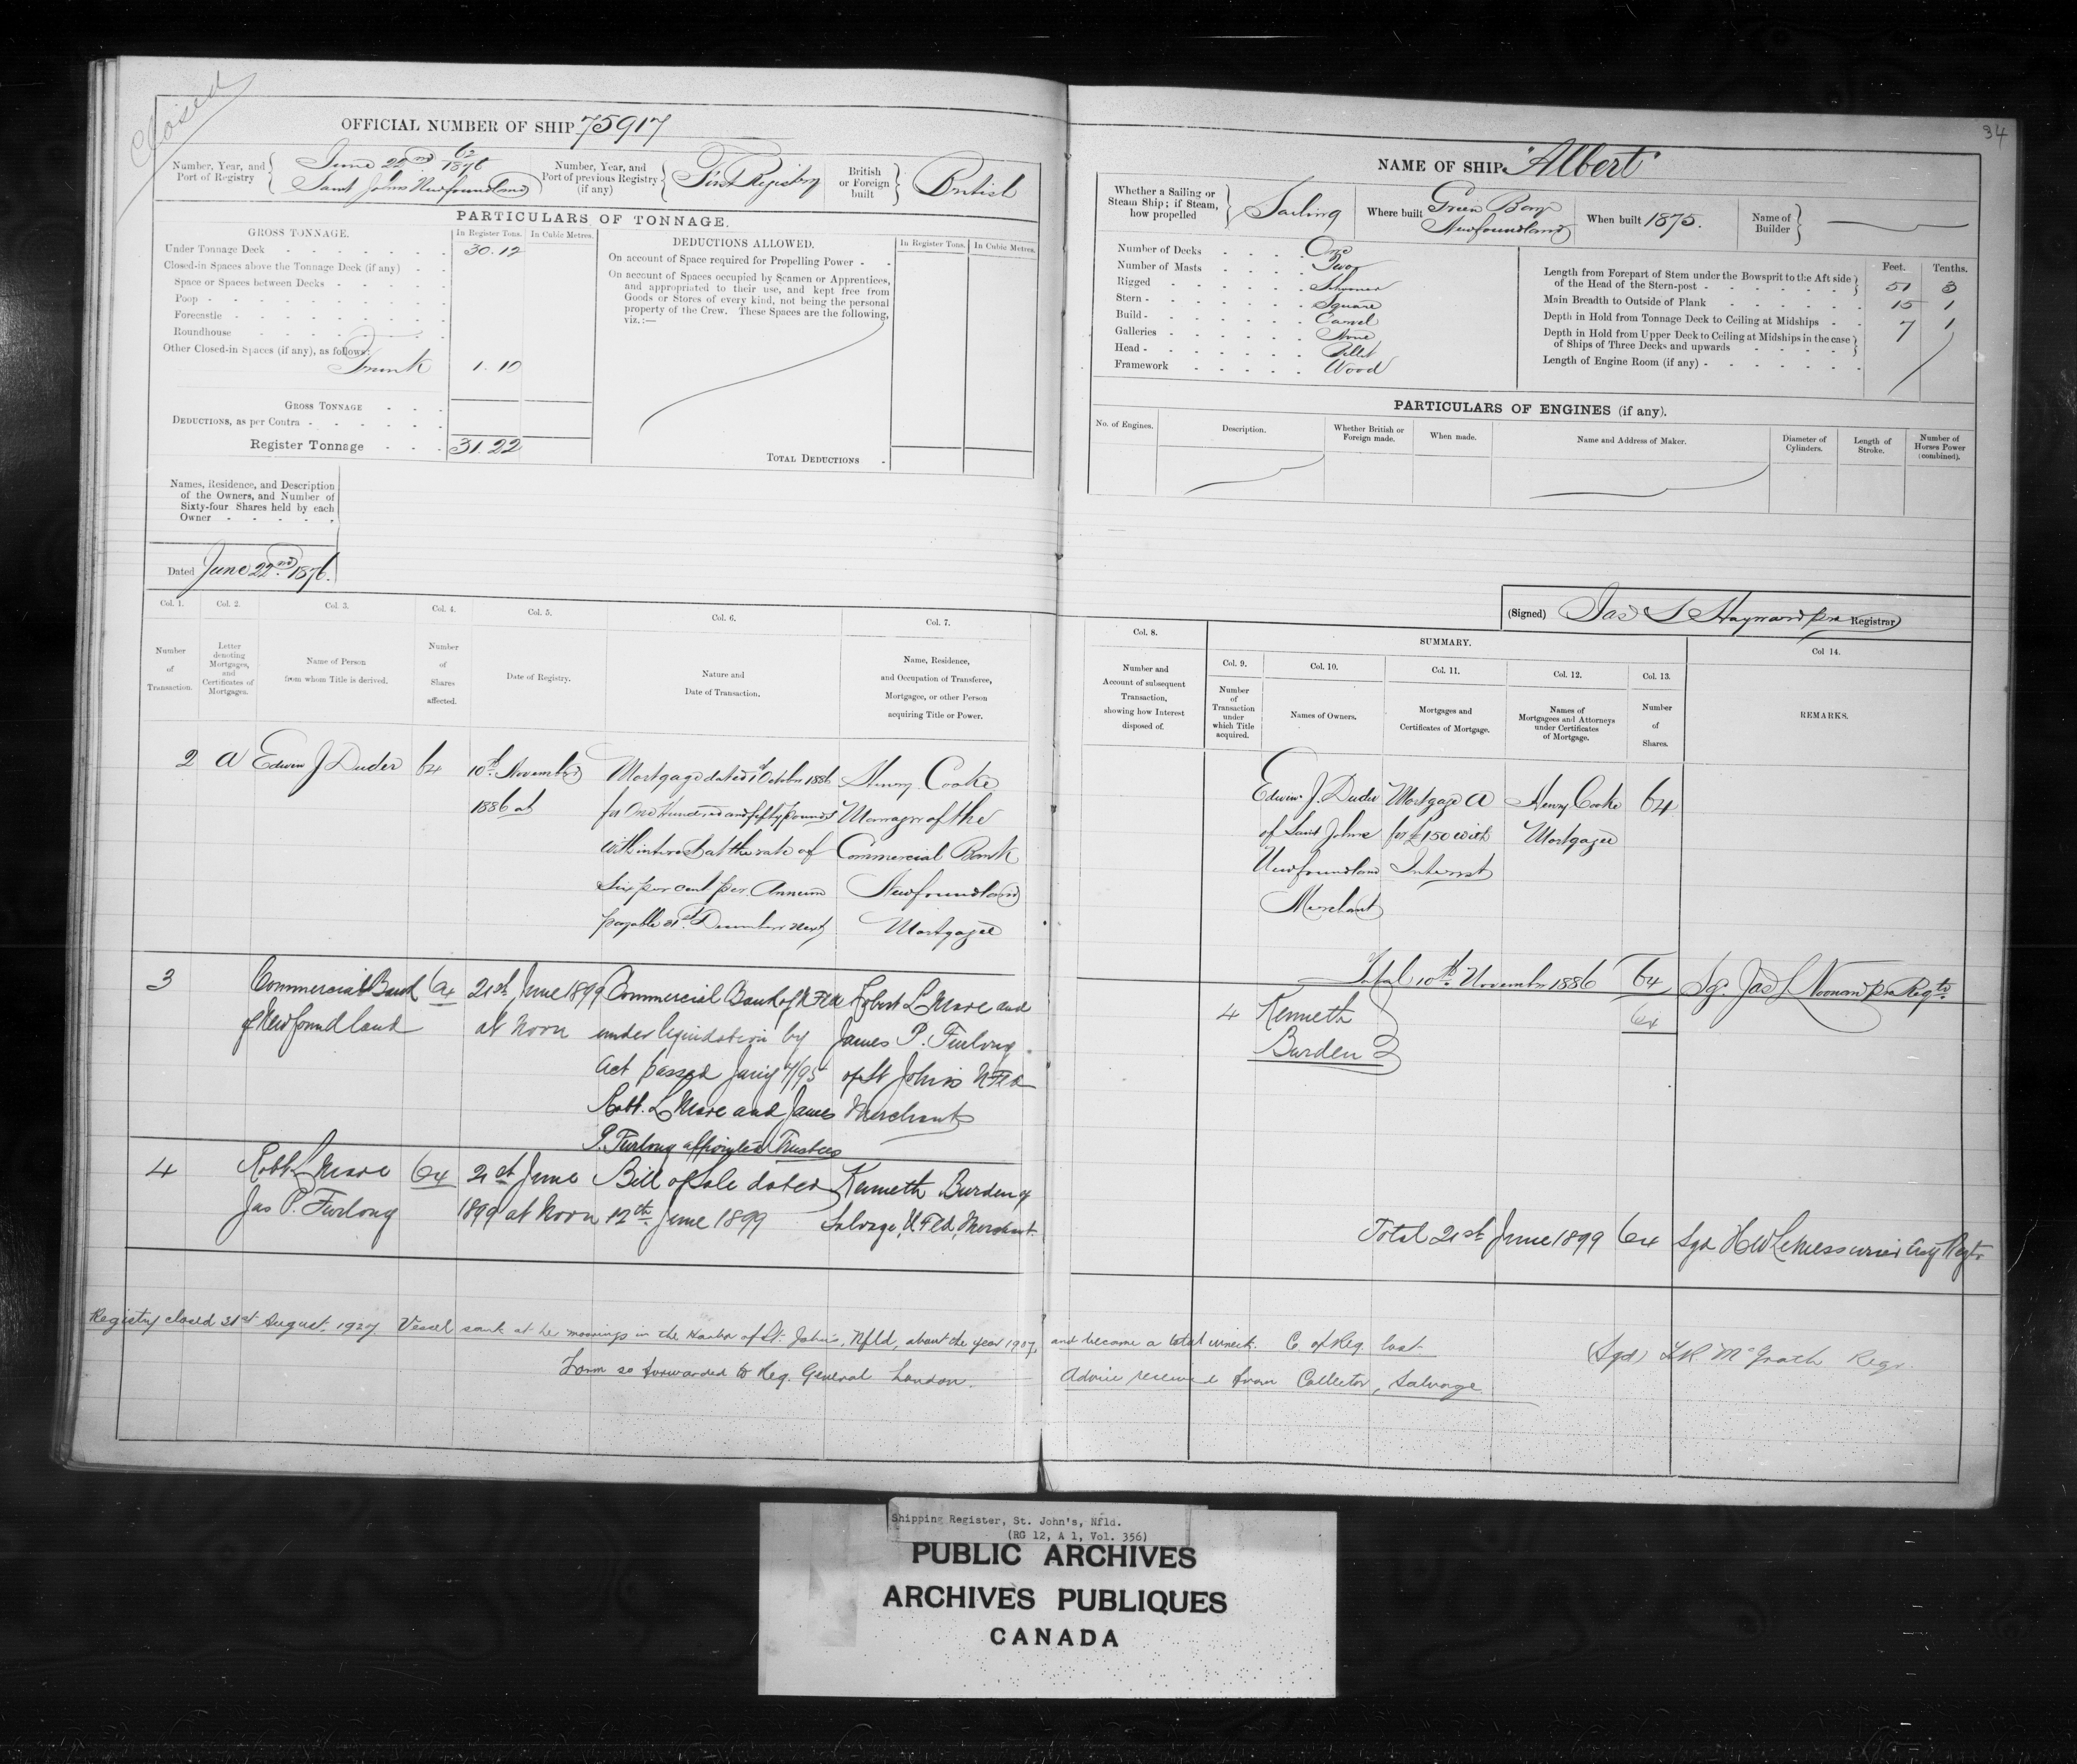 Closed
34
OFFICIAL NUMBER OF SHIP 75917
Number, Year, and Port of Registry
June 22nd 62 1876
Saint Johns Newfoundland
Number, Year, and Port of previous Registry (if any)
First Registry
British or Foreign built
British
PARTICULARS OF TONNAGE.
GROSS TONNAGE.
In Register Tons.
In Cubic Metres.
Under Tonnage Deck 30.12
Closed-in Spaces above the Tonnage Deck (if any)
Space or Spaces between Decks
Poop
Forecastle
Roundhouse
Other Closed-in Spaces (if any), as follows:
Trunk 1.10
GROSS TONNAGE
DEDUCTIONS, as per Contra
Register Tonnage 31.22
DEDUCTIONS ALLOWED.
In Register Tons.
In Cubic Metres.
On account of Space required for Propelling Power
On account of Spaces occupied by Seamen or Apprentices,
and appropriated to their use, and kept free from
Goods or Stores of every kind, not being the personal
property of the Crew. These Spaces are the following,
viz.:—
TOTAL DEDUCTIONS
Names, Residence, and Description
of the Owners, and Number of
Sixty-four Shares held by each
Owner
Dated June 22nd 1876.
NAME OF SHIP "Albert"
Whether a Sailing or
Steam Ship; if Steam,
how propelled
Sailing
Where built
Green Bay
Newfoundland
When built 1875.
Name of Builder
Number of Decks One
Number of Masts Two
Rigged Schooner
Stern Square
Build Carvel
Galleries None
Head Billet
Framework Wood
Feet. Tenths.
Length from Forepart of Stem under the Bowsprit to the Aft side
of the Head of the Stern-post 51 8
Main Breadth to Outside of Plank 15 1
Depth in Hold from Tonnage Deck to Ceiling at Midships 7 1
Depth in Hold from Upper Deck to Ceiling at Midships in the case
of Ships of Three Decks and upwards
Length of Engine Room (if any)
PARTICULARS OF ENGINES (if any).
No. of Engines.
Description.
Whether British or Foreign made.
When made.
Name and Address of Maker.
Diameter of Cylinders.
Length of Stroke.
Number of Horses Power (combined).
(Signed) Jas L Hayward pro Registrar
Col. 1.
Col. 2.
Col. 3.
Col. 4.
Col. 5.
Col. 6.
Col. 7.
Number of Transaction.
Letter denoting Mortgages, and Certificates of Mortgages.
Name of Person from whom Title is derived.
Number of Shares affected.
Date of Registry.
Nature and Date of Transaction.
Name, Residence, and Occupation of Transferee, Mortgagee, or other Person acquiring Title or Power.
Col. 8.
SUMMARY.
Col. 9.
Col. 10.
Col. 11.
Col. 12.
Col. 13.
Col 14.
Number and Account of subsequent Transaction, showing how Interest disposed of.
Number of Transaction under which Title acquired.
Names of Owners.
Mortgages and Certificates of Mortgage.
Names of Mortgagees and Attorneys under Certificates of Mortgage.
Number of Shares.
REMARKS.
2 A Edwin J Duder 64
10th November
1886 at
Mortgage dated 1st October 1886
for One Hundred and fifty pounds
with interest at the rate of
Six per cent per Annum
payable 31st December next
Henry Cooke
Manager of the
Commercial Bank
Newfoundland
Mortgagee
Edwin J. Duder
of Saint Johns
Newfoundland
Merchant
Mortgage A
for £150 with
Interest
Henry Cooke
Mortgagee
64
Total 10th November 1886 64
3 Commercial Bank
of Newfoundland
64
21st June 1899
at Noon
Commercial Bank of NFld
under liquidation by
Act passed Jany 4/95
Robt. L Mare and James
P. Furlong appointed Trustees
Robert L Mare and
James P. Furlong
of St John's NFld
Merchants
4 Kenneth
Burden
64
4 Robt L Mare
Jas P. Furlong
64
21st June
1899 at Noon
Bill of Sale dated
12th June 1899
Kenneth Burden of
Salvage, NFld, Merchant.
Total 21st June 1899 64 Sgd H W LeMessurier Asst Regtr
Registry closed 31st August, 1927 Vessel sank at her moorings in the Harbor of St. John's, Nfld, about the year 1907, and became a total wreck. C. of Reg. lost
(Sgd) McGrath Regr.
Form so forwarded to Reg. General London. Advice received from Collector, Salvage
Shipping Register, St. John's, Nfld.
(RG 12, A 1, Vol. 356)
PUBLIC ARCHIVES
ARCHIVES PUBLIQUES
CANADA